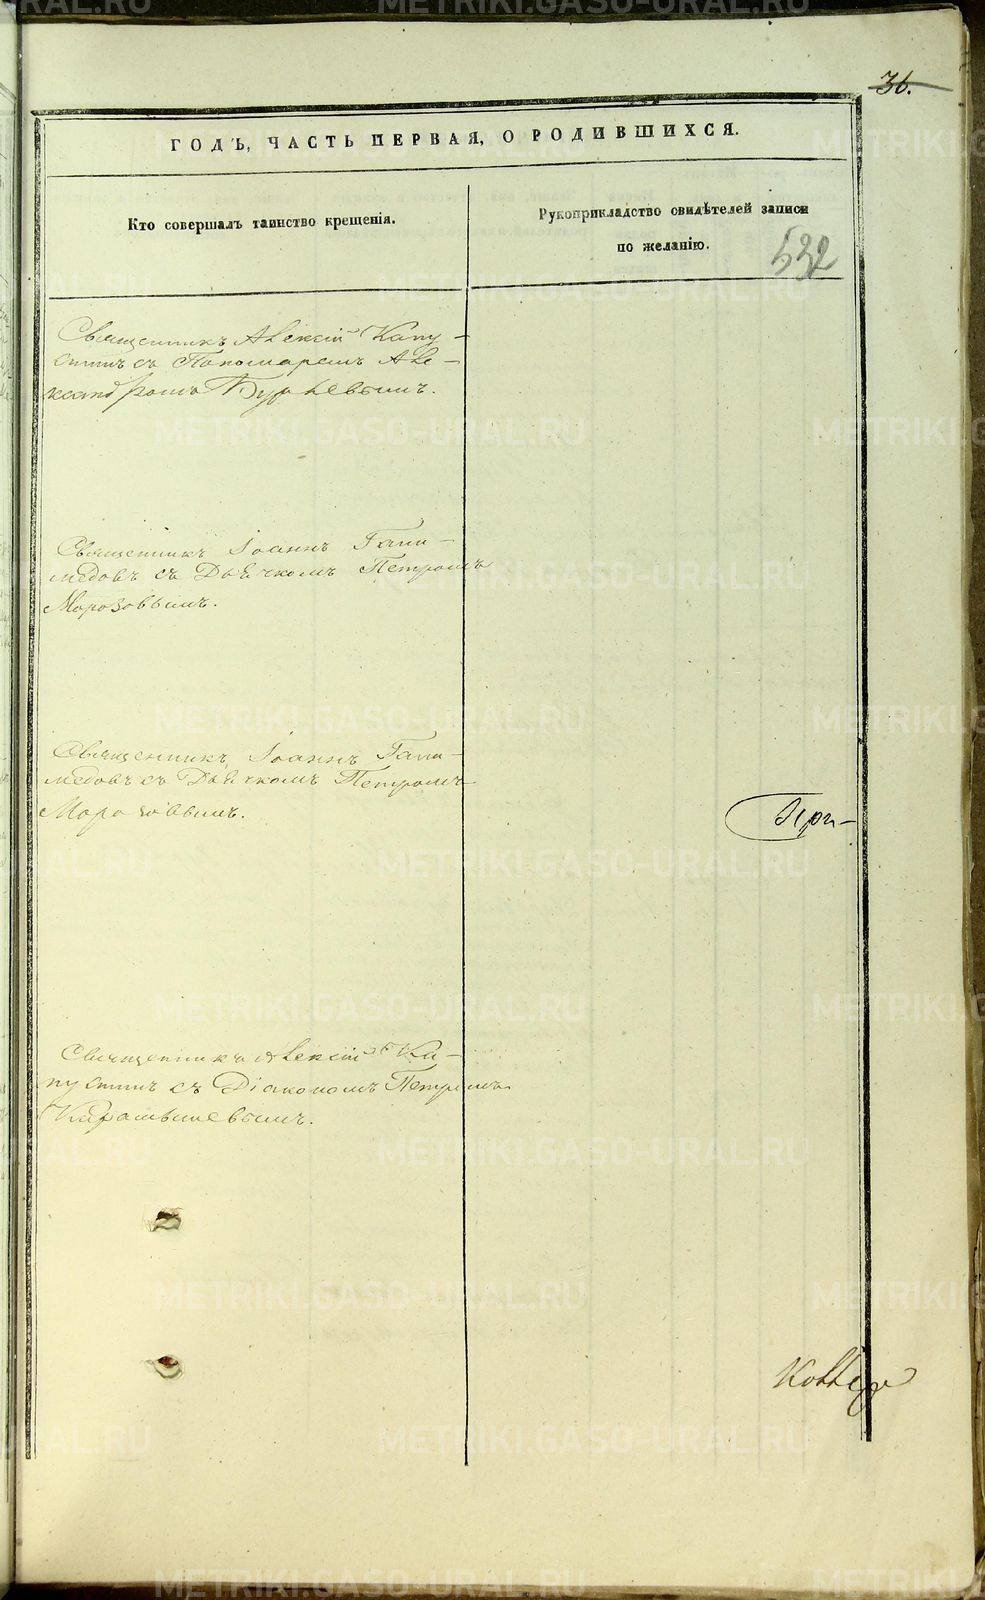 36.
ГОДЪ, ЧАСТЬ ПЕРВАЯ, О РОДИВШИХСЯ.
Кто совершалъ таинство крещенія.
Рукоприкладство свидѣтелей записи
по желанію.
532
Священникъ Алексій Капу-
стинъ съ Пономаремъ Але-
ксандромъ
Священникъ Іоаннъ Гани-
медовъ съ Дьячкомъ Петромъ
Морозовымъ.
Священникъ Іоаннъ Гани-
медовъ съ Дьячкомъ Петромъ
Морозовымъ.
При-
Священникъ Алексій Ка-
пустинъ съ Діакономъ Петромъ
Карамышевымъ.
METRIKI.GASO-URAL.RU